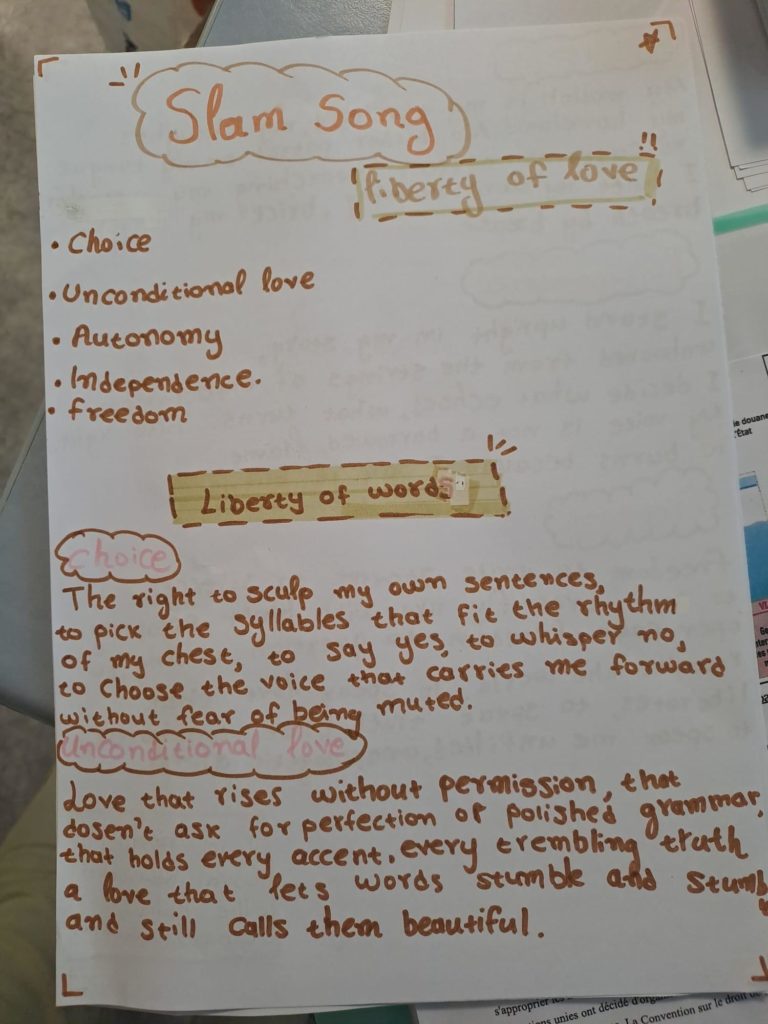 Slam Song
!!
liberty of love
• Choice
• Unconditional love
• Autonomy
• Independence.
• freedom
Liberty of words
choice
The right to sculp my own sentences,
to pick the syllables that fit the rhythm
of my chest, to say yes, to whisper no,
to choose the voice that carries me forward
without fear of being muted.
Unconditional love
Love that rises without permission, that
dosen't ask for perfection of polished grammar,
that holds every accent, every trembling truth
a love that lets words stumble and
and still calls them beautiful.
de douane
l'État
s'approprier les
tions unies ont décidé
La Convention sur le droit de